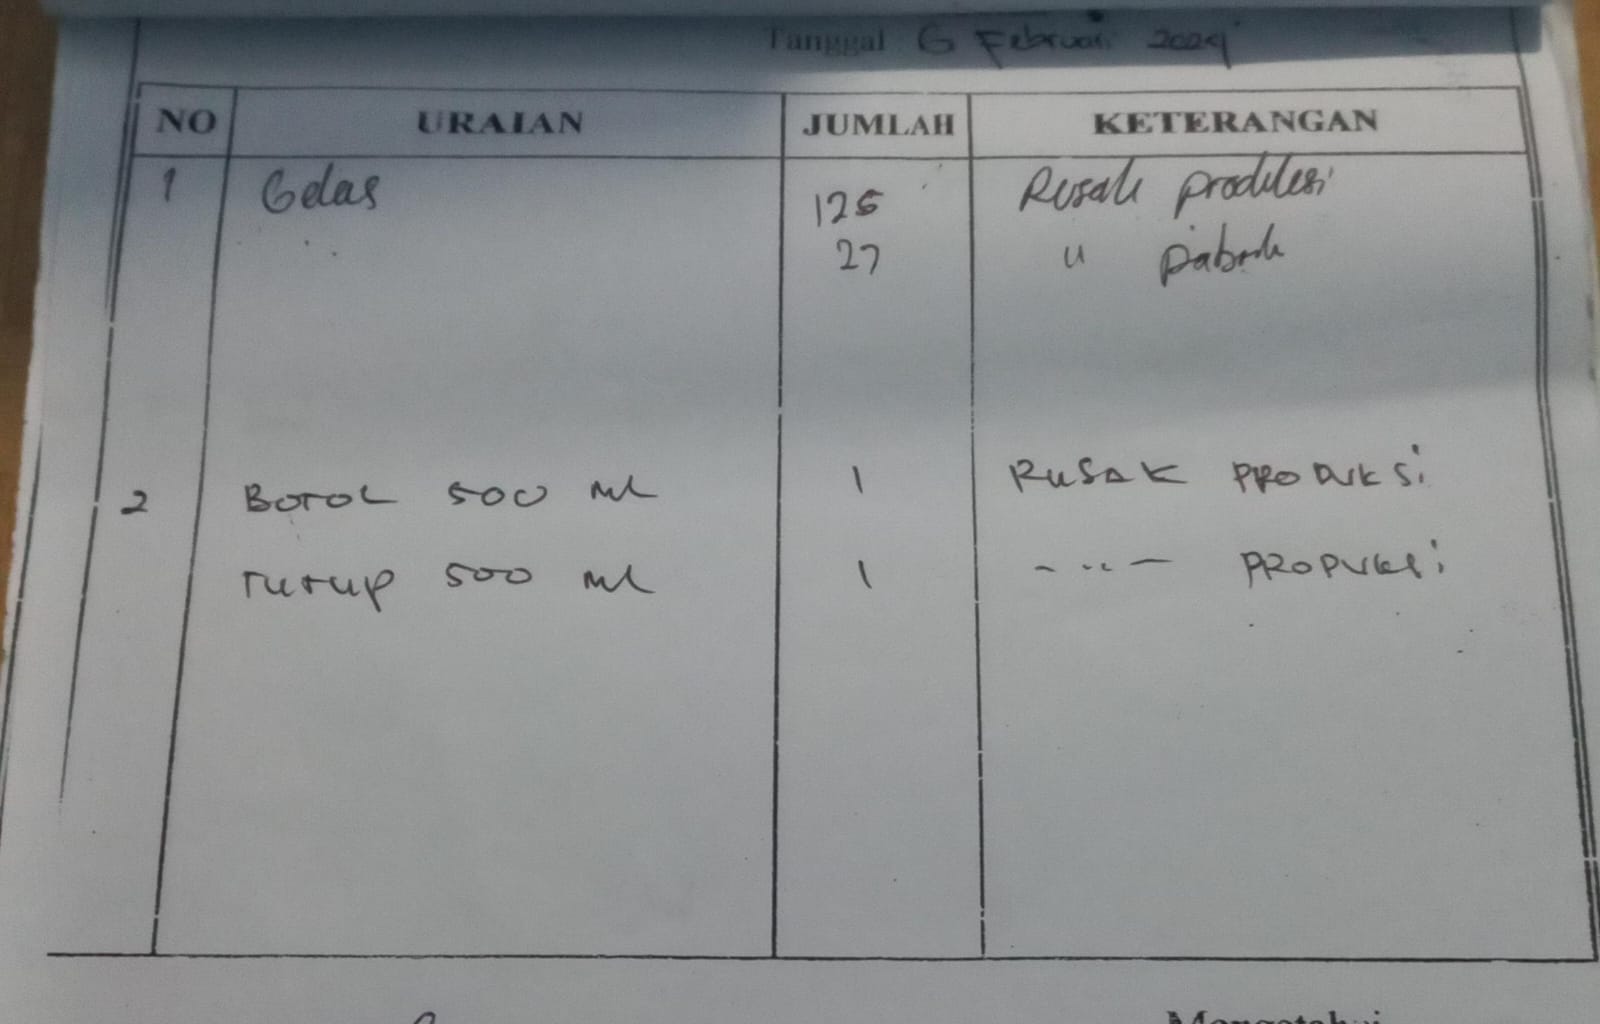 Tanggal 6 Februari 2024
NO URAIAN JUMLAH KETERANGAN
1 Gelas 125 Rusak produksi
27 u pabrik
2 BOTOL 500 ml 1 RUSAK PRODUKSI
TUTUP 500 ml 1 - .. - PRODUKSI
Mengetahui